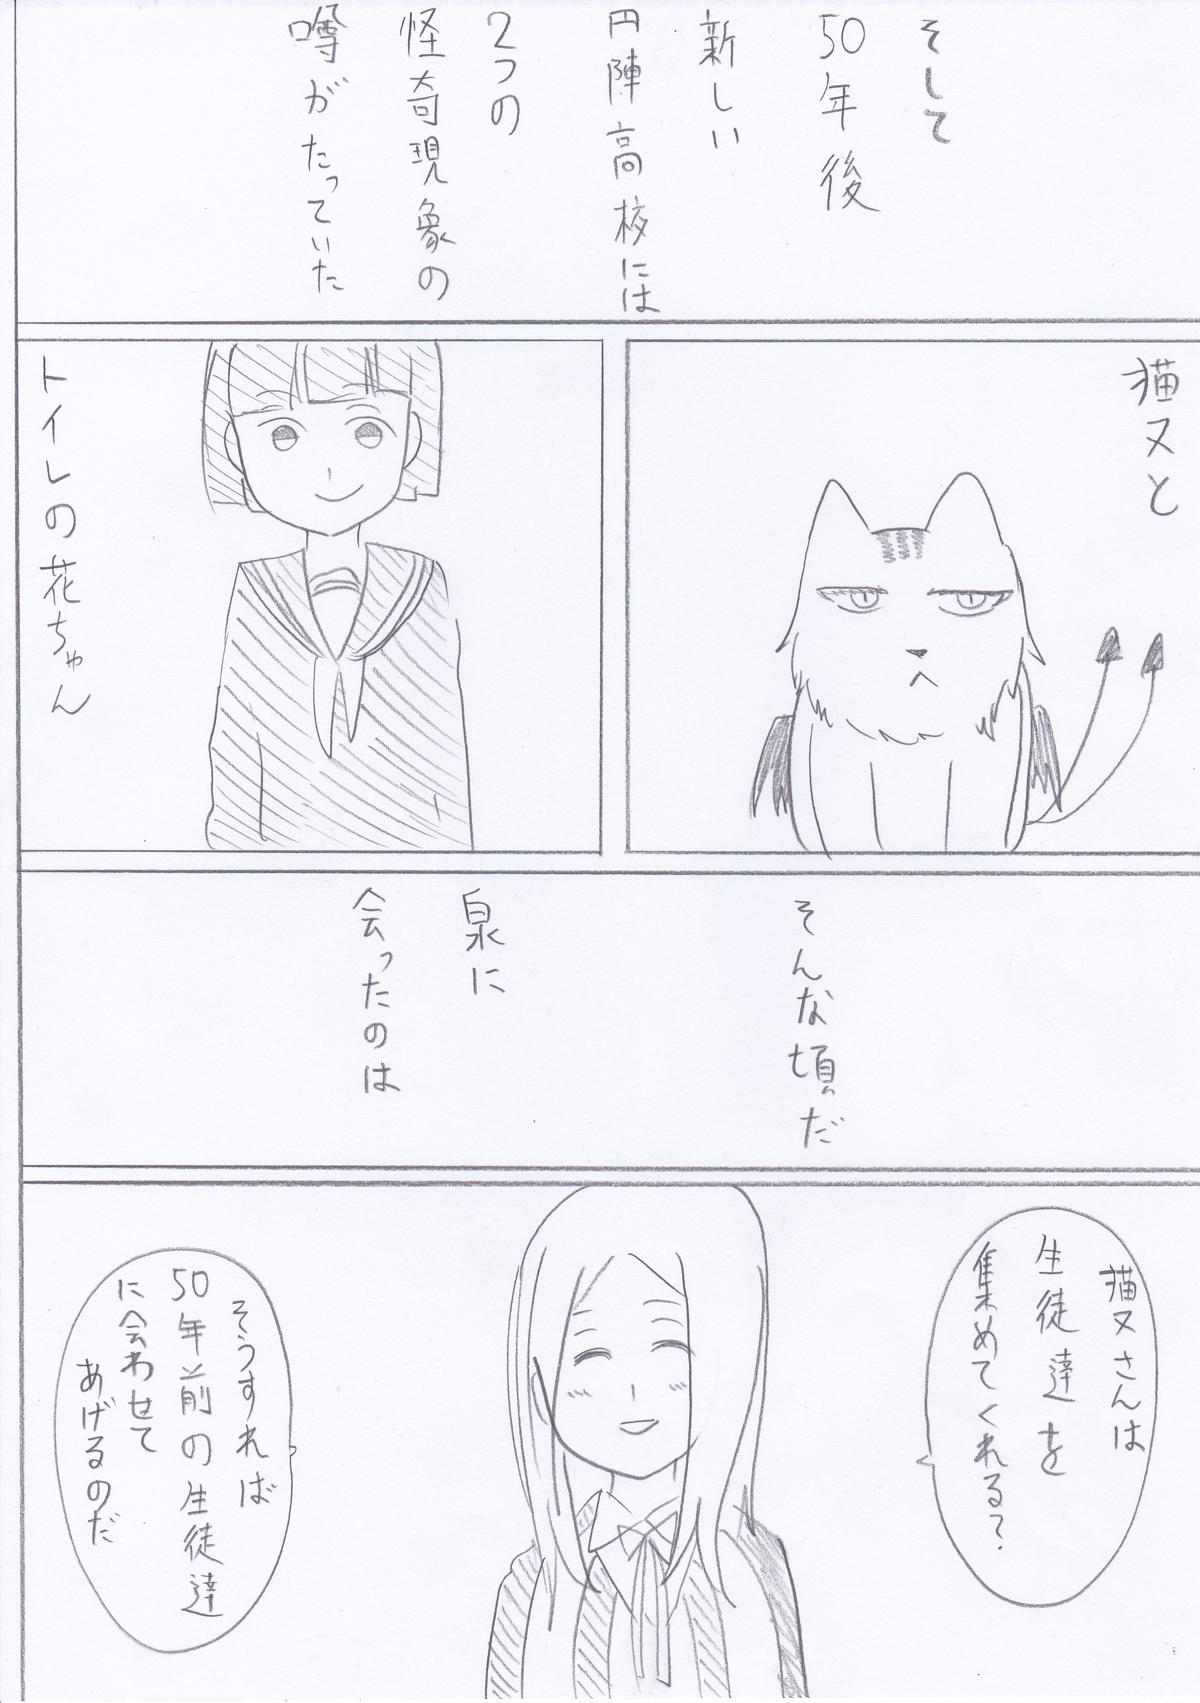 そして
50年後
新しい
円陣高校には
2つの
怪奇現象の
噂がたっていた
猫又と
トイレの花ちゃん
そんな頃だ
泉に
会ったのは
猫又さんは
生徒達を
集めてくれる?
そうすれば
50年前の生徒達
に会わせて
あげるのだ